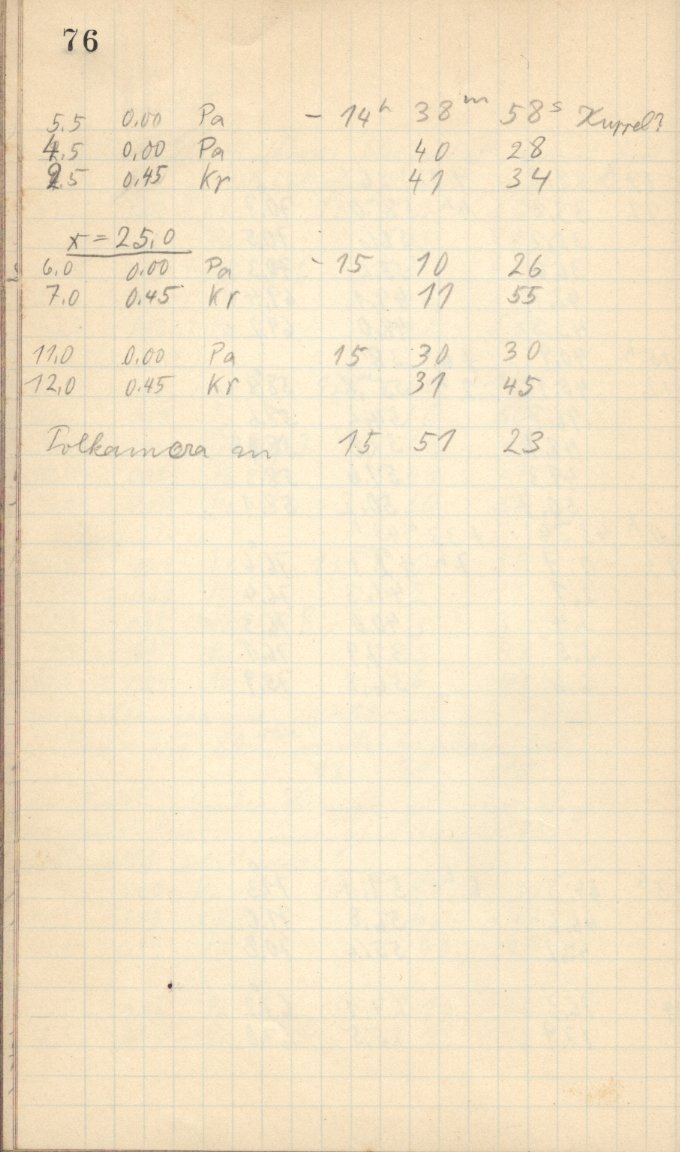 76
5.5 0.00 Pa - 14h 38m 58s Kuppel?
4.5 0,00 Pa 40 28
2.5 0.45 Kr 41 34
x = 25,0
6.0 0.00 Pa - 15 10 26
7.0 0.45 Kr 11 55
11.0 0.00 Pa 15 30 30
12,0 0.45 Kr 31 45
Polkamera an 15 51 23